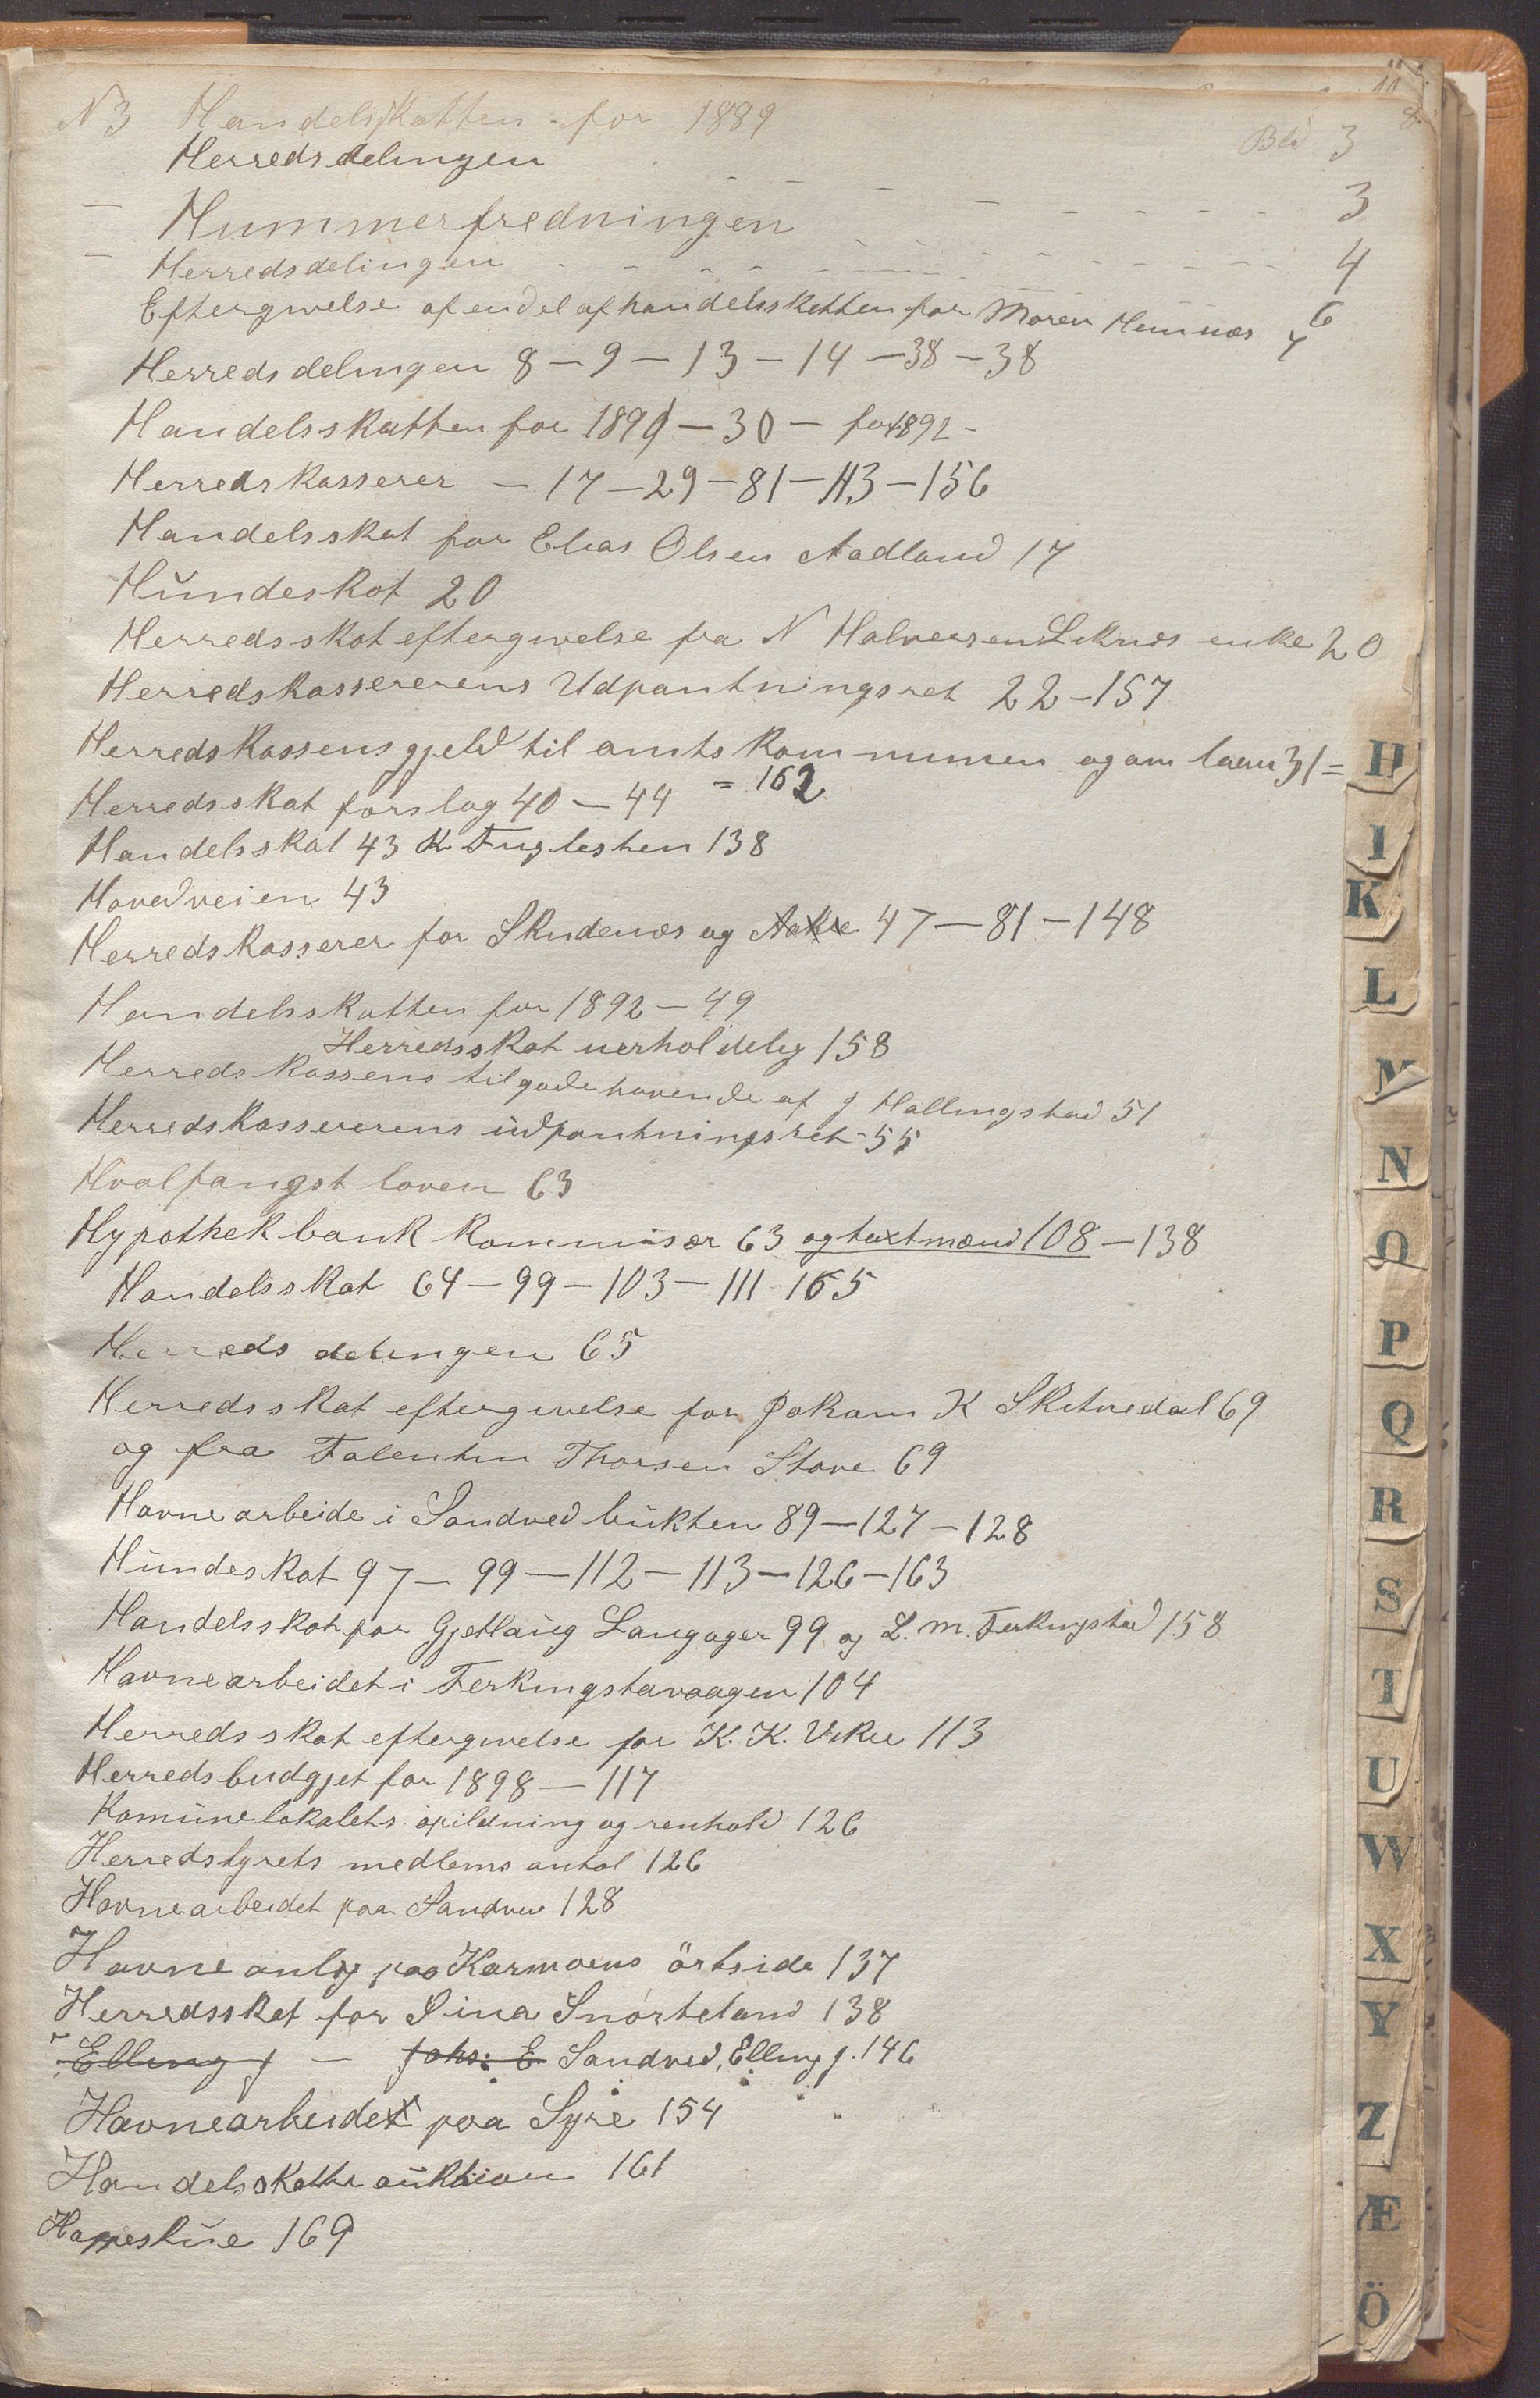 N 3 Handelsskatten for 1889 Bld 3
Herredsdelingen
— Hummerfredningen - - - - - - - - - 3
— Herredsdelingen - - - - - - - - - - 4
Eftergivelse af en del af handelsskatten for Maren 6
7
Herredsdelingen 8 — 9 — 13 — 14 — 38 — 38
Handelsskatten for 1891 — 30 — for 1892 -
Herredskasserer — 17 — 29 — 81 — 113 — 156
Handelsskat for Elias Olsen Aadland 17
Hundeskat 20
Herredsskat eftergivelse fra N Halversen Liknes enke 20
Herredskassererens Udpantningsret 22 - 157
Herredskassens gjeld til amtskommunen og om laan 31 =
Herredsskat forslag 40 — 44 = 162
Handelsskat 43 K. Fuglesten 138
Hovedveien 43
Herredskasserer for Skudenes og Aakre 47 — 81 — 148
Handelsskatten for 1892 — 49
Herredsskat uerholdelig 158
Herredskassens tilgodehavende af J Hallingstad 51
Herredskassererens udpantningsret - 55
Hvalfangst loven 63
Hypothekbank kommisær 63 og taxtmænd 108 — 138
Handelsskat 64 — 99 — 103 — 111 - 165
Herreds delingen 65
Herredsskat eftergivelse for Jakam K Skitnedal 69
og fra Falentin Thorsen Stave 69
Havnearbeide i Sandved bukten 89 — 127 — 128
Hundeskat 97 — 99 — 112 — 113 — 126 — 163
Handelsskat for Gjetlaug Langager 99 og L. M. Ferkingstad 158
Havnearbeidet i Ferkingstavaagen 104
Herredsskat eftergivelse for K. K. Vike 113
Herredsbudgjet for 1898 — 117
Komunelokalets opildning og renhold 126
Herredstyrets medlems antal 126
Havnearbeidet paa Sandve 128
Havneanlg paa Karmøens örtside 137
Herredsskat for Sina Snörteland 138
" Elling J — Johs: E Sandved, Elling J. 146
Havnearbeidet paa Syre 154
Handelsskatte auktion 161
169
H
I
K
L
M
N
O
P
Q
R
S
T
U
W
X
Y
Z
Æ
Ö